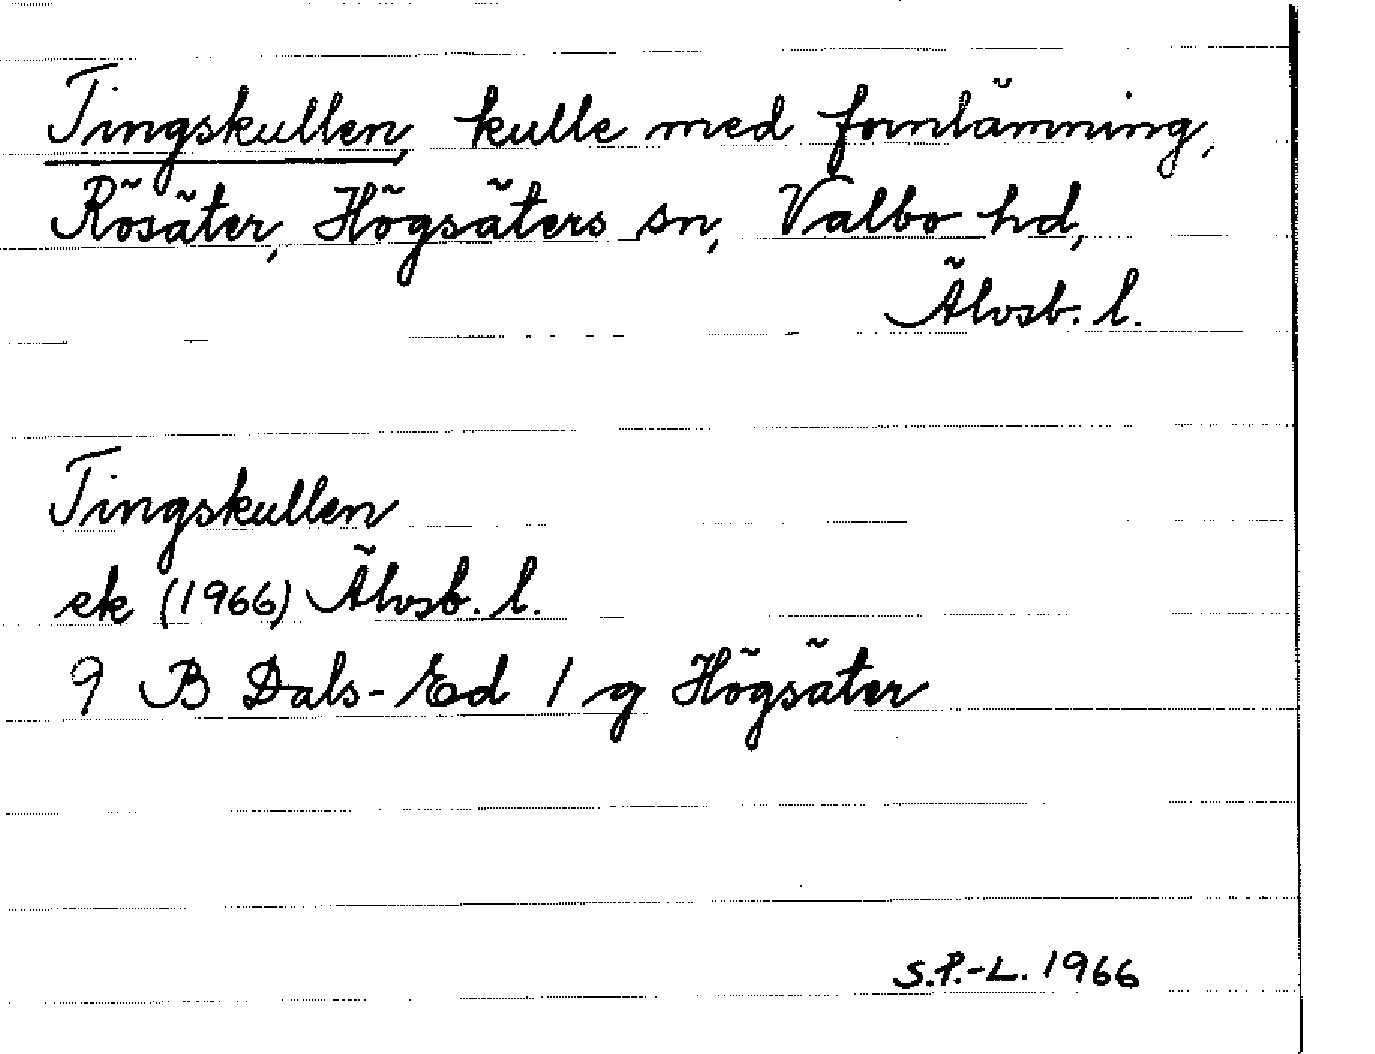 Tingskullen, kulle med fornlämning,
Rösäter, Högsäters sn, Valbo hd,
Älvsb. l.
Tingskullen
ek (1966) Älvsb. l.
9 B Dals-Ed 1 g Högsäter
S.P.-L. 1966